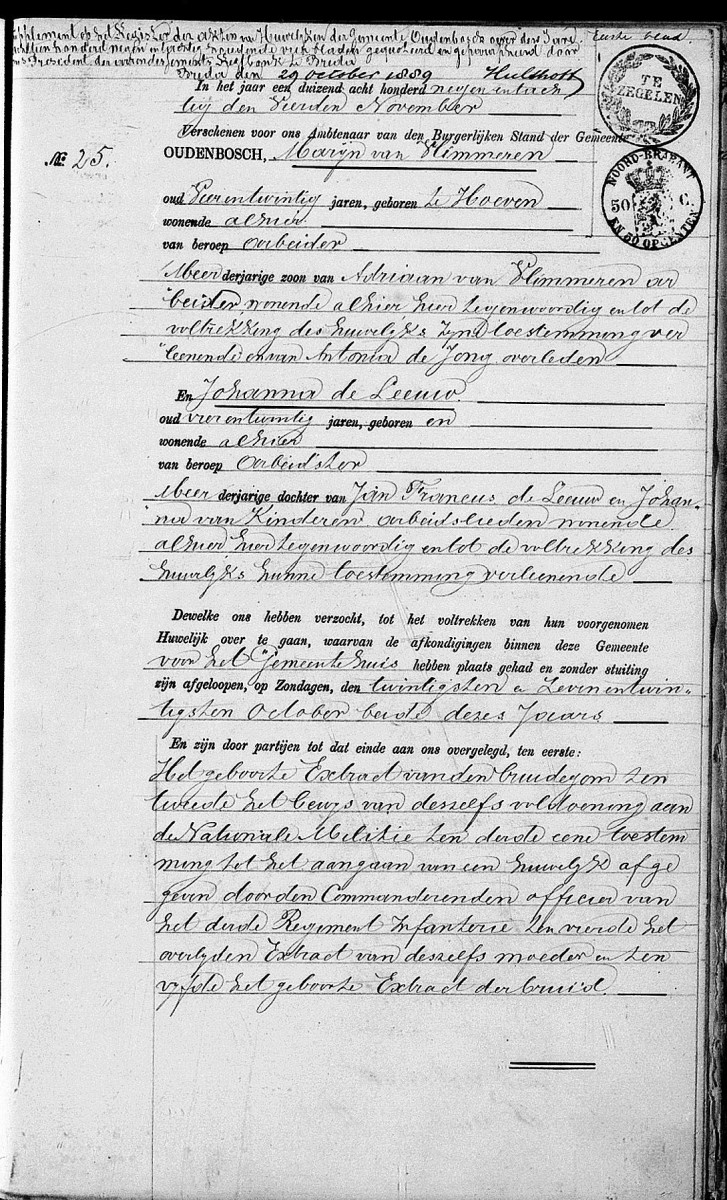 Supplement op het Register der akten van Huwelijken der gemeente Oudenbosch over den Jare
achttien honderd negen en tachtig houdende vier bladen gequoteerd en geparapheerd door
ons President der arrondissements Regtbank te Breda
Breda den 29 October 1889 Hulshoff
Eerste blad.
TE ZEGELEN
NOORD-BRABANT
50 C.
EN 50 OPCENTEN
In het jaar een duizend acht honderd negen en tach
tig den Vierden November
Verschenen voor ons Ambtenaar van den Burgerlijken Stand der Gemeente
No. 25. OUDENBOSCH, Marijn van Slimmeren
oud Vierentwintig jaren, geboren te Hoeven
wonende alhier
van beroep arbeider
Meerderjarige zoon van Adriaan van Slimmeren ar
"beider wonende alhier hier tegenwoordig en tot de
voltrekking des huwelijks zijne toestemming ver
"leenende en van Antonia de Jong overleden
En Johanna de Leeuw
oud vierentwintig jaren, geboren en
wonende alhier
van beroep arbeidster
Meerderjarige dochter van Jan Francus de Leeuw en Johan"
"na van Kinderen arbeidslieden wonende
alhier hier tegenwoordig en tot de voltrekking des
huwelijks hunne toestemming verleenende
Dewelke ons hebben verzocht, tot het voltrekken van hun voorgenomen
Huwelijk over te gaan, waarvan de afkondigingen binnen deze Gemeente
voor het Gemeentehuis hebben plaats gehad en zonder stuiting
zijn afgeloopen, op Zondagen, den twintigsten en Zevenentwin"
tigsten October beide dezes Jaars
En zijn door partijen tot dat einde aan ons overgelegd, ten eerste:
Het geboorte Extract van den bruidegom ten
tweede het bewijs van deszelfs voldoening aan
de Nationale Militie ten derde eene toestem
ming tot het aangaan van een huwelijk afge
geven door den Commanderenden officier van
het derde Regiment Infanterie ten vierde het
overlijden Extract van deszelfs moeder en ten
vijfde het geboorte Extract der bruid.